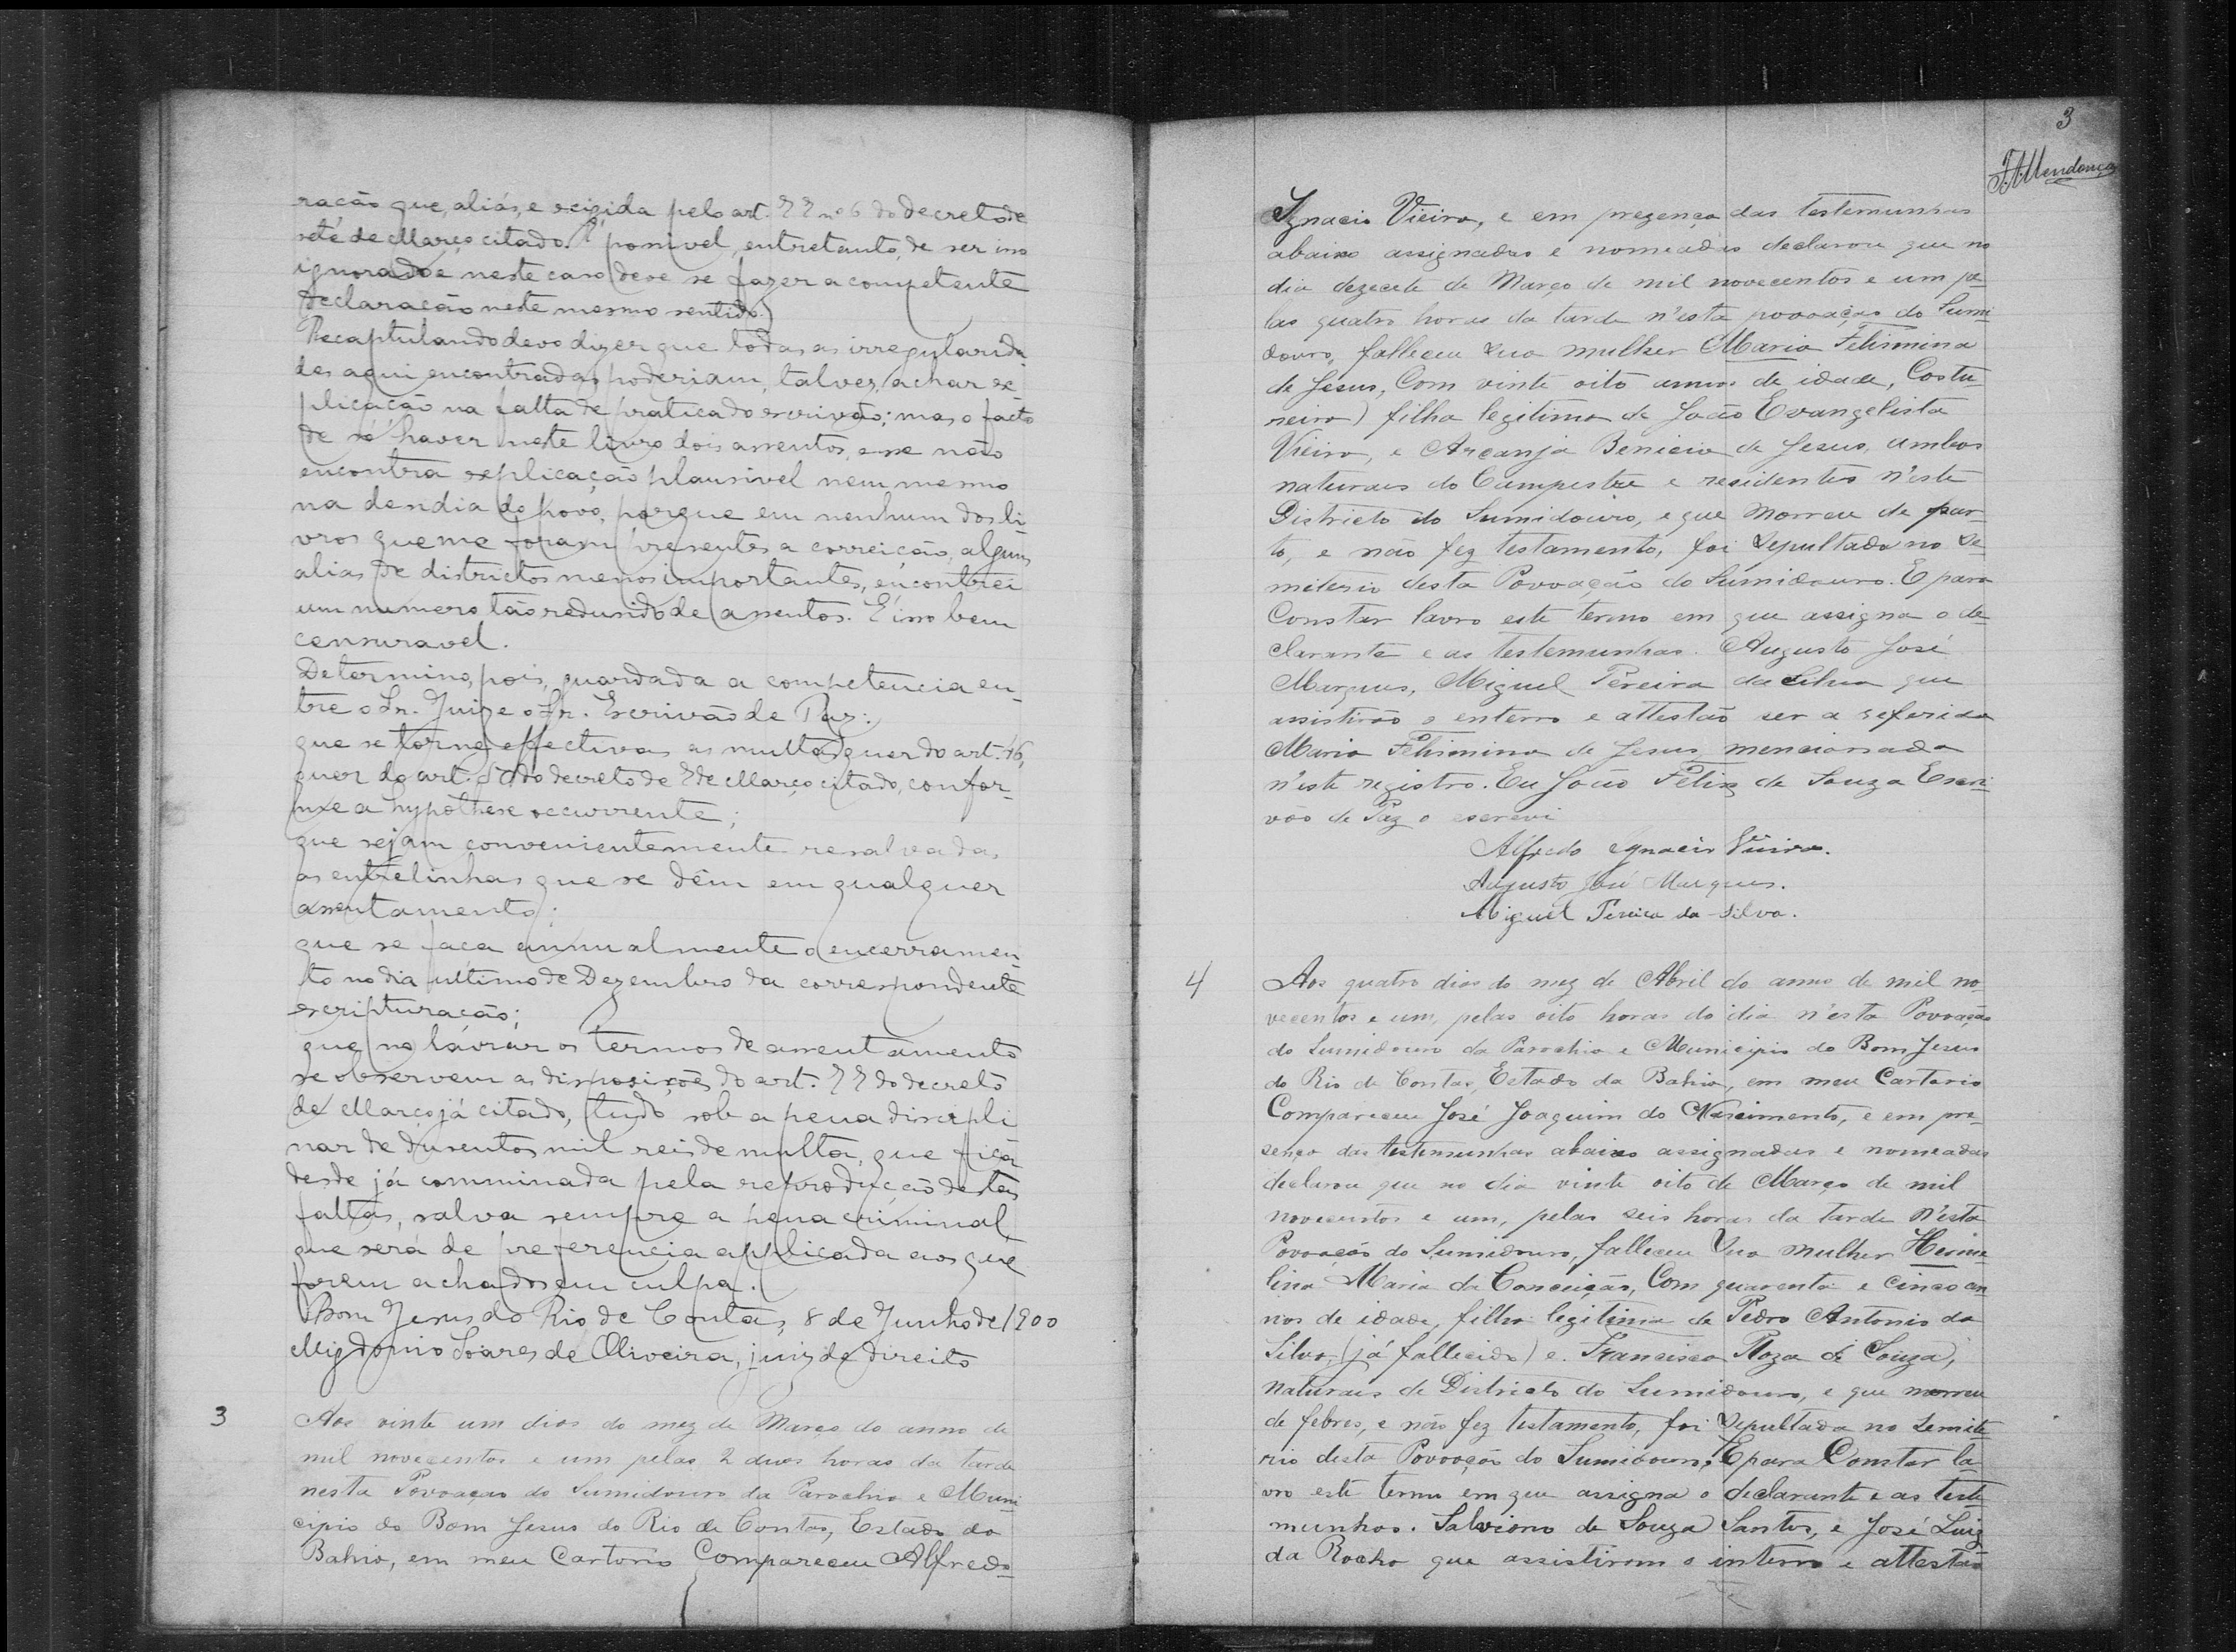 ração que, aliás, é exigida pelo art. 77 nº 6 do decreto de
sete de Março citado. É possivel, entretanto, de ser isso
ignorado e neste caso deve se fazer a competente
declaração neste mesmo sentido.
Recaptulando devo dizer que todas as irregularida-
des aqui encontradas poderiam, talves, achar ex-
plicação na falta de pratica do escrivão; mas o facto
de só haver neste livro dois assentos, esse não
encontra explicação plausivel nem mesmo
na desidia do povo, porque em nenhum dos li-
vros que me foram presentes a correição, alguns
alias de districtos menos importantes, encontrei
um numero tão redusido de assentos. É isso bem
censuravel.
Determino, pois, guardada a competencia en-
tre o Sr. Juiz e o Sr. Escrivão de Paz:
que se torne effectivas as multas quer do art. 46,
quer do art. 50 do decreto de 7 de Março citado, confor-
me a hypothese occurrente;
que sejam convenientemente resalvadas
as entrelinhas que se dêm em qualquer
assentamento;
que se faça annualmente o encerramen-
to no dia ultimo de Dezembro da correspondente
escripturação;
que no lavrar os termos de assentamento
se observem as disposições do art. 77 do decreto
de Março já citado, tudo sob a pena discipli
nar de dusentos mil reis de multa, que fica
desde já comminada pela reproducção destas
faltas, salva sempre a pena criminal
que será de preferencia applicada aos que
forem achados em culpa.
Bom Jesus do Rio de Contas, 8 de Junho de 1900
Migdonio Soares de Oliveira, juiz de direito
3
Aos vinte um dias do mez de Março do anno de
mil novecentos e um pelas 2 duas horas da tarde
nesta Povoaçao do Sumidouro da Parochia e Muni
cipio do Bom Jesus do Rio de Contas, Estado da
Bahia, em meu Cartorio Compareceu Alfredo
3
F.A. Mendonça
Ignacio Vieira, e em prezença das testemunhas
abaixo assignadas e nomeadas declarou que no
dia dezecete de Março de mil novecentos e um pe-
las quatro horas da tarde n'esta povoaçao do Sumi-
douro, falleceu sua mulher Maria Felismina
de Jesus, Com vinte oito annos de idade, Costu-
reira) filha legitima de João Evangelista
Vieira, e Arcanja Benicia de Jesus, ambos
naturaes do Campestre e residentes n'este
Districto do Sumidouro, e que morreu de par-
to, e não fez testamento, foi Sepultada no Se-
miterio desta Povoação do Sumidouro. E para
Constar lavro este termo em que assigna o de-
clarante e as testemunhas. Augusto José
Marques, Miguel Pereira da Silva que
assistirão o enterro e attestão ser a referida
Maria Felismina de Jesus mencionada
n'este registro. Eu João Felix de Souza Escri-
vão de Paz o escrevi
Alfredo Ignacio Vieira.
Augusto José Marques.
Miguel Pereira da Silva.
4
Aos quatro dias do mez de Abril do anno de mil no
vecentos e um, pelas oito horas do dia n'esta Povoação
do Sumidouro da Parochia e Municipio do Bom Jesus
do Rio de Contas, Estado da Bahia, em meu Cartorio
Compareceu José Joaquim do Nascimento, e em pre-
sença das testemunhas abaixo assignadas e nomeadas
declarou que no dia vinte oito de Março de mil
novecentos e um, pelas seis horas da tarde n'esta
Povoação do Sumidouro, falleceu Sua mulher Herme-
lina Maria da Conceição, Com quarenta e cinco an
nos de idade, filha legitima de Pedro Antonio da
Silva, (já fallecido) e Francisca Roza de Souza,
naturaes de Districto do Sumidouro, e que morreu
de febres, e não fez testamento, foi Sepultada no Semite
rio desta Povoação do Sumidouro. E para Constar la-
vro este termo em que assigna o declarante e as teste
munhas. Salviano de Souza Santos, e José Luiz
da Rocha que assistirem o interro e attestão